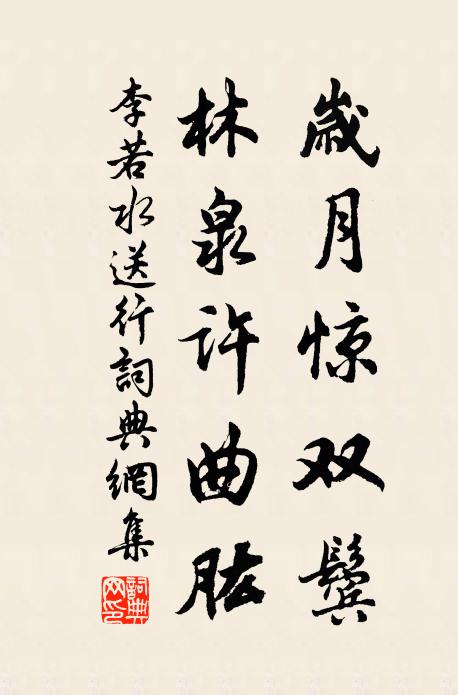 歲月惊双鬓
林泉许曲肱
李若水送行詞典網集
詞典网印